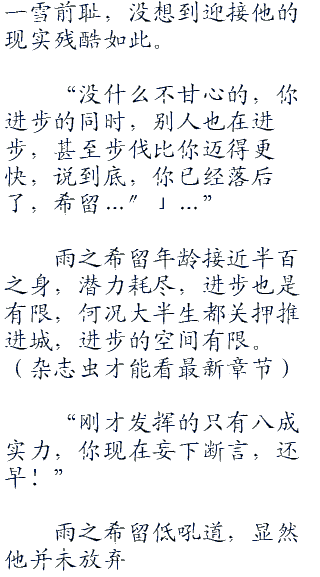 一雪前耻，没想到迎接他的
现实残酷如此。
“没什么不甘心的，你
进步的同时，别人也在进
步，甚至步伐比你迈得更
快，说到底，你已经落后
了，希留…〞」…”
雨之希留年龄接近半百
之身，潜力耗尽，进步也是
有限，何况大半生都关押推
进城，进步的空间有限。
（杂志虫才能看最新章节）
“刚才发挥的只有八成
实力，你现在妄下断言，还
早！”
雨之希留低吼道，显然
他并未放弃